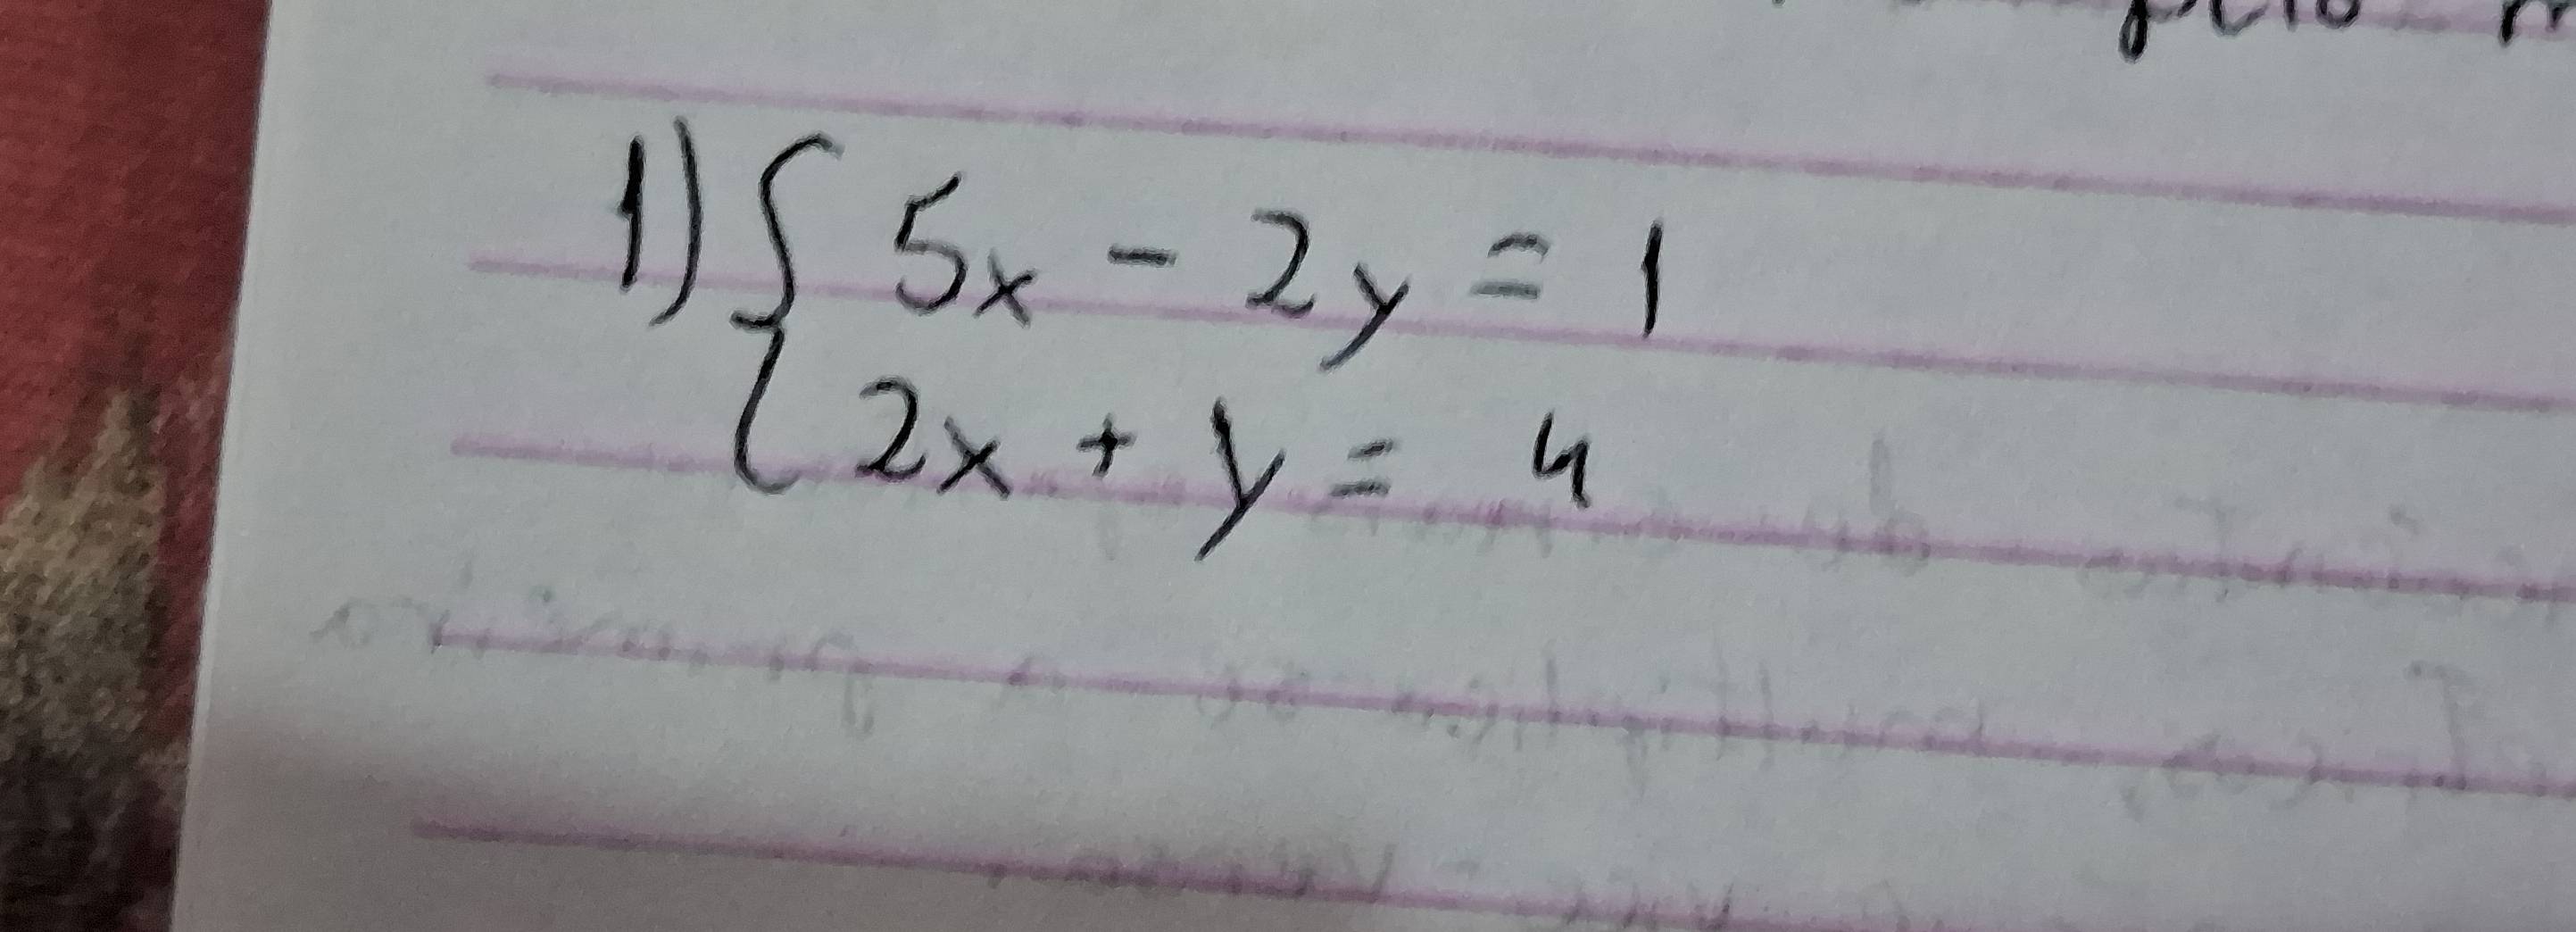 1) { 5x - 2y = 1
2x + y = 4